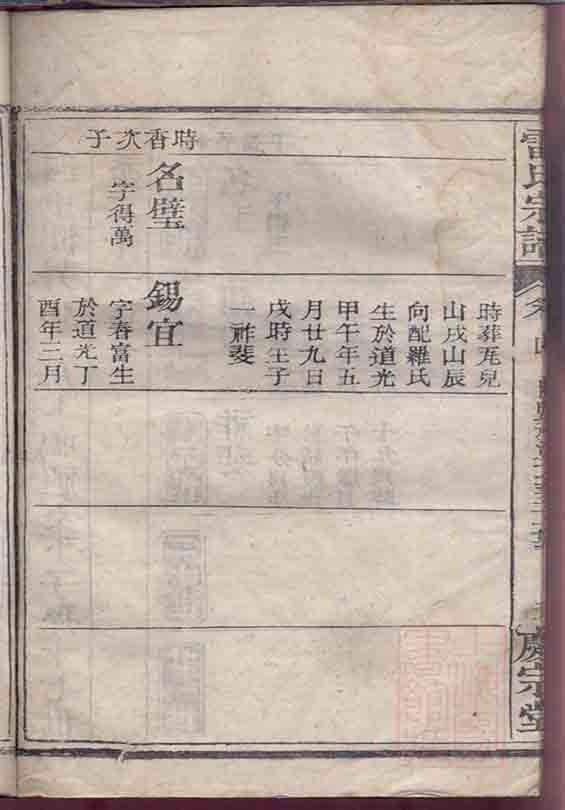 雷氏宗譜
慶宗堂
時香次子
名璧
字得萬
時葬茏兒
山戌山辰
向配羅氏
生於道光
甲午年五
月廿九日
戌時壬子
一祚斐
錫宜
字春富生
於道光丁
酉年二月